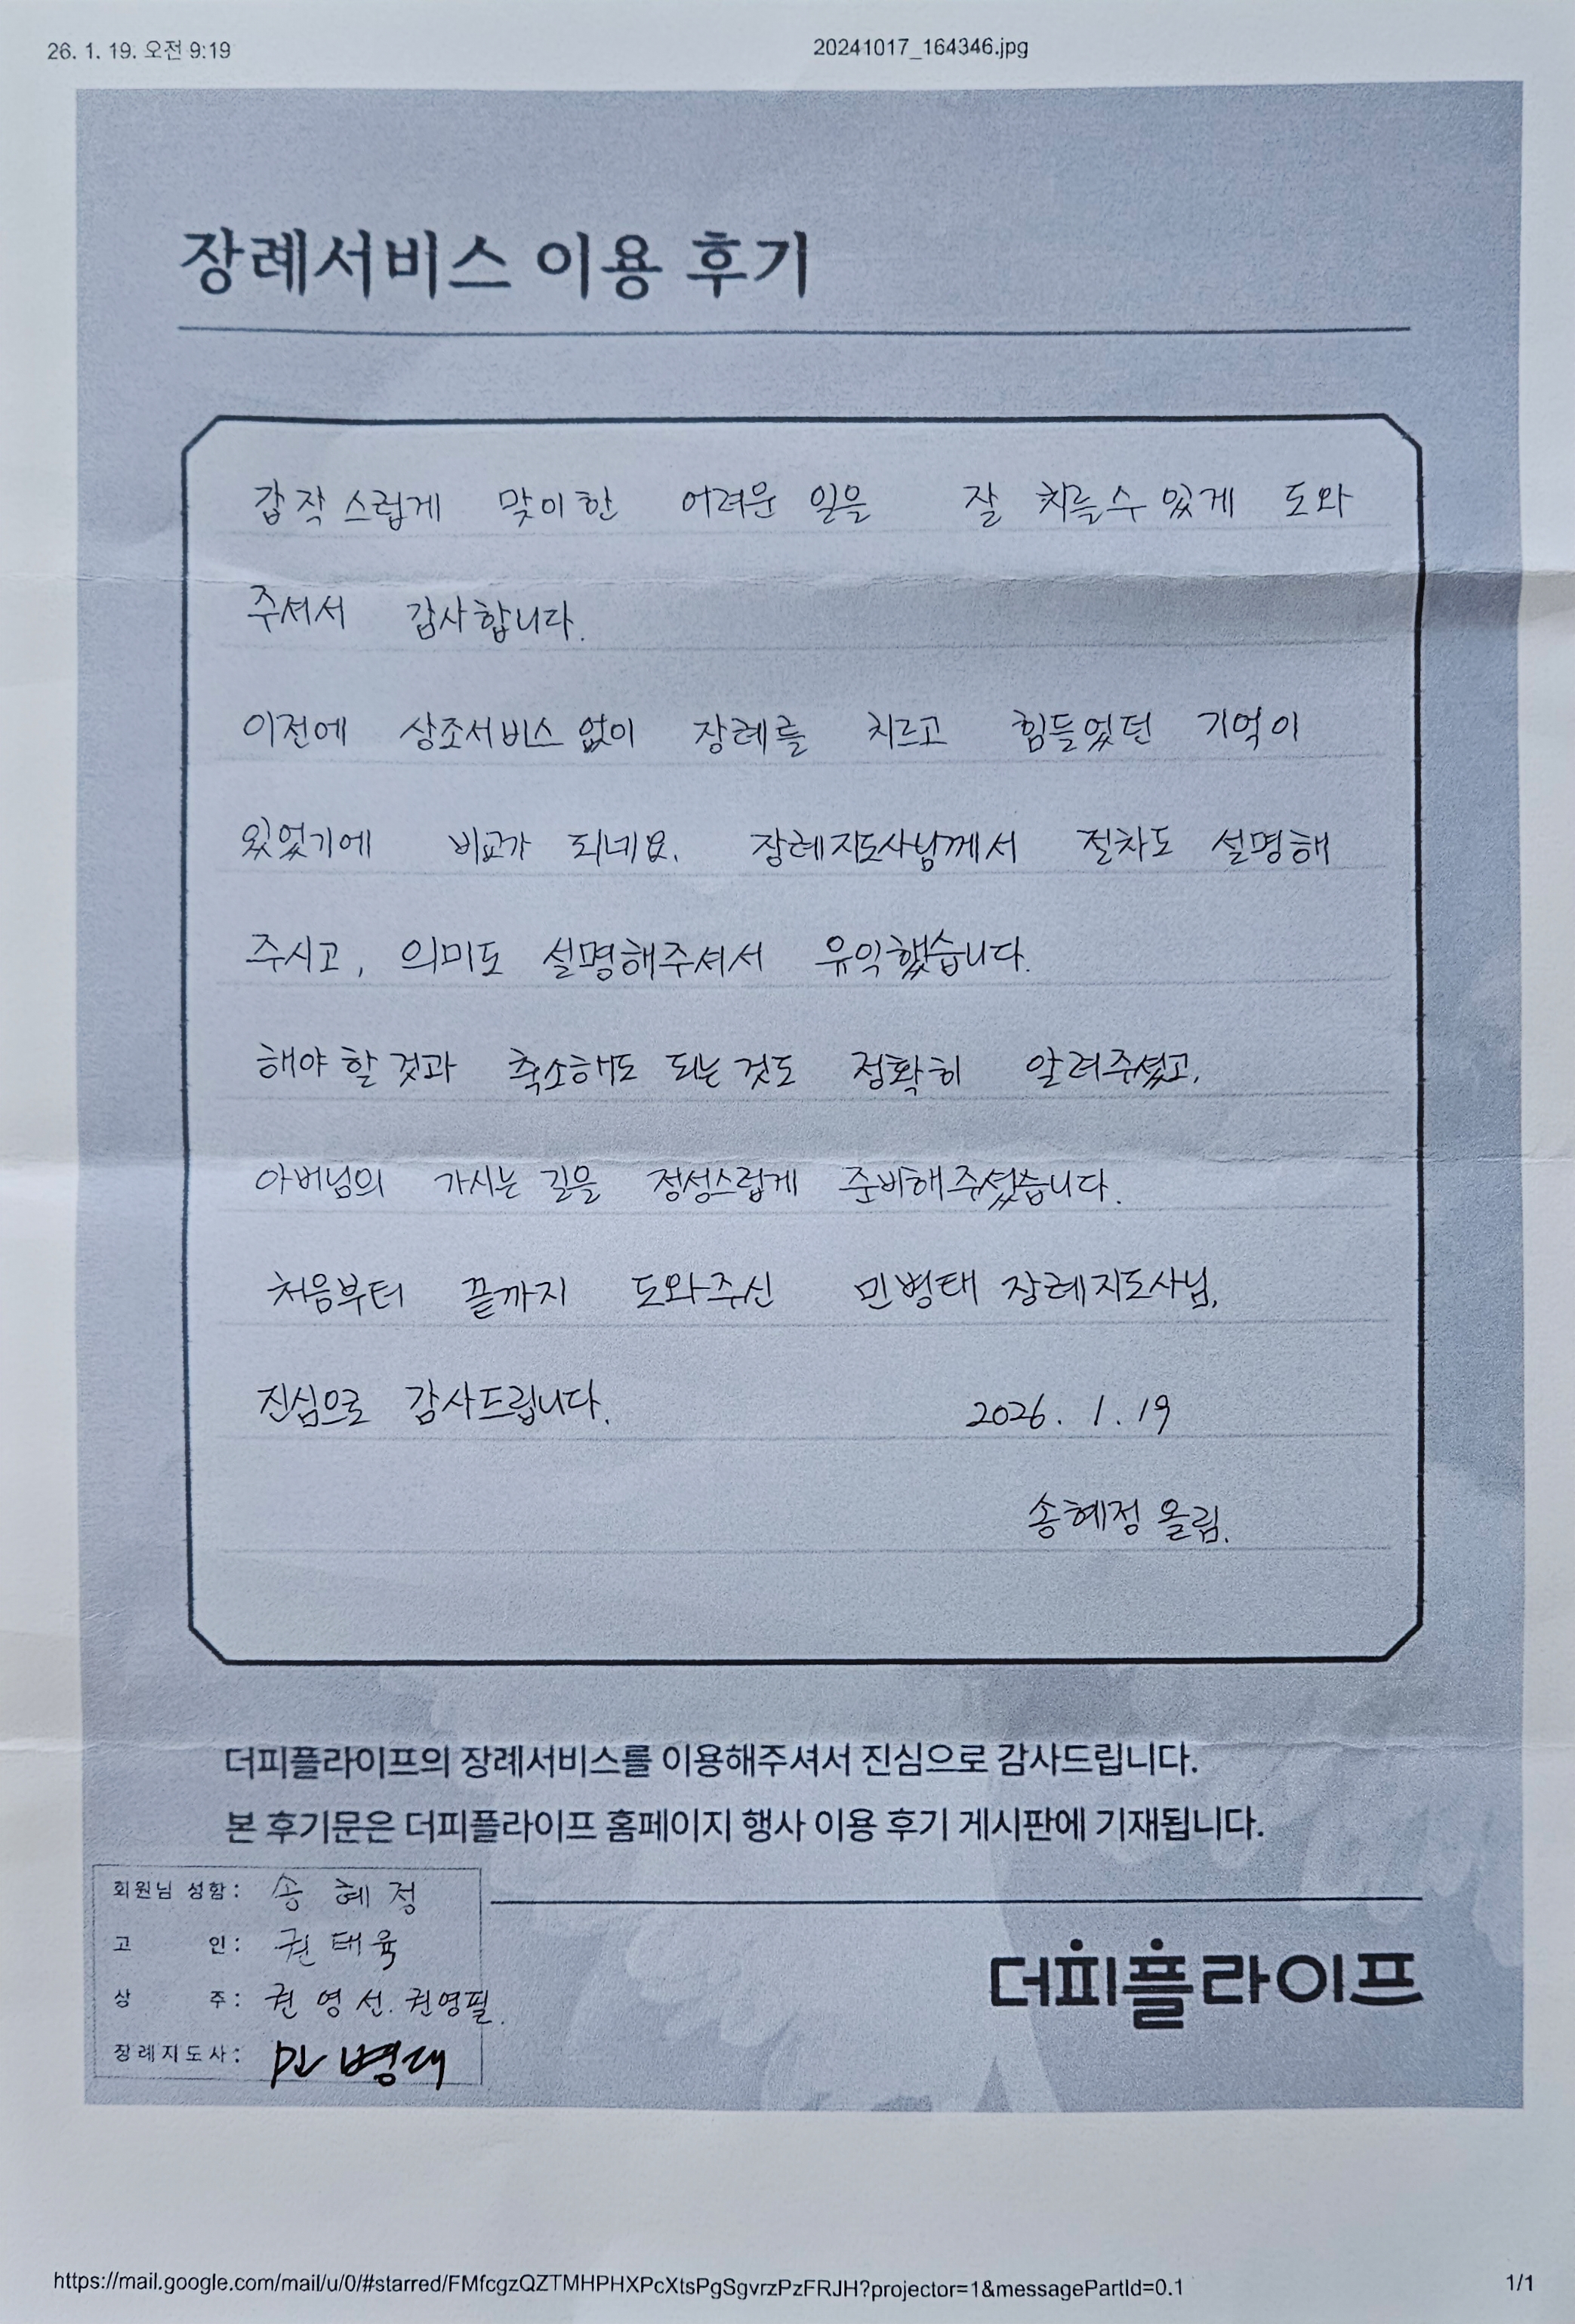 26. 1. 19. 오전 9:19
20241017_164346.jpg
장례서비스 이용 후기
갑작스럽게 맞이한 어려운 일을 잘 치를수 있게 도와
주셔서 감사합니다.
이전에 상조서비스 없이 장례를 치르고 힘들었던 기억이
있었기에 비교가 되네요. 장례지도사님께서 절차도 설명해
주시고, 의미도 설명해주셔서 유익했습니다.
해야 할 것과 축소해도 되는 것도 정확히 알려주셨고,
아버님의 가시는 길을 정성스럽게 준비해주셨습니다.
처음부터 끝까지 도와주신 민병태 장례지도사님,
진심으로 감사드립니다. 2026. 1. 19
송혜정 올림.
더피플라이프의 장례서비스를 이용해주셔서 진심으로 감사드립니다.
본 후기문은 더피플라이프 홈페이지 행사 이용 후기 게시판에 기재됩니다.
회원님 성함: 송혜정
고 인: 권태욱
상 주: 권영선. 권영필.
장례지도사: 민병태
더피플라이프
https://mail.google.com/mail/u/0/#starred/FMfcgzQZTMHPHXPcXtsPgSgvrzPzFRJH?projector=1&messagePartId=0.1
1/1